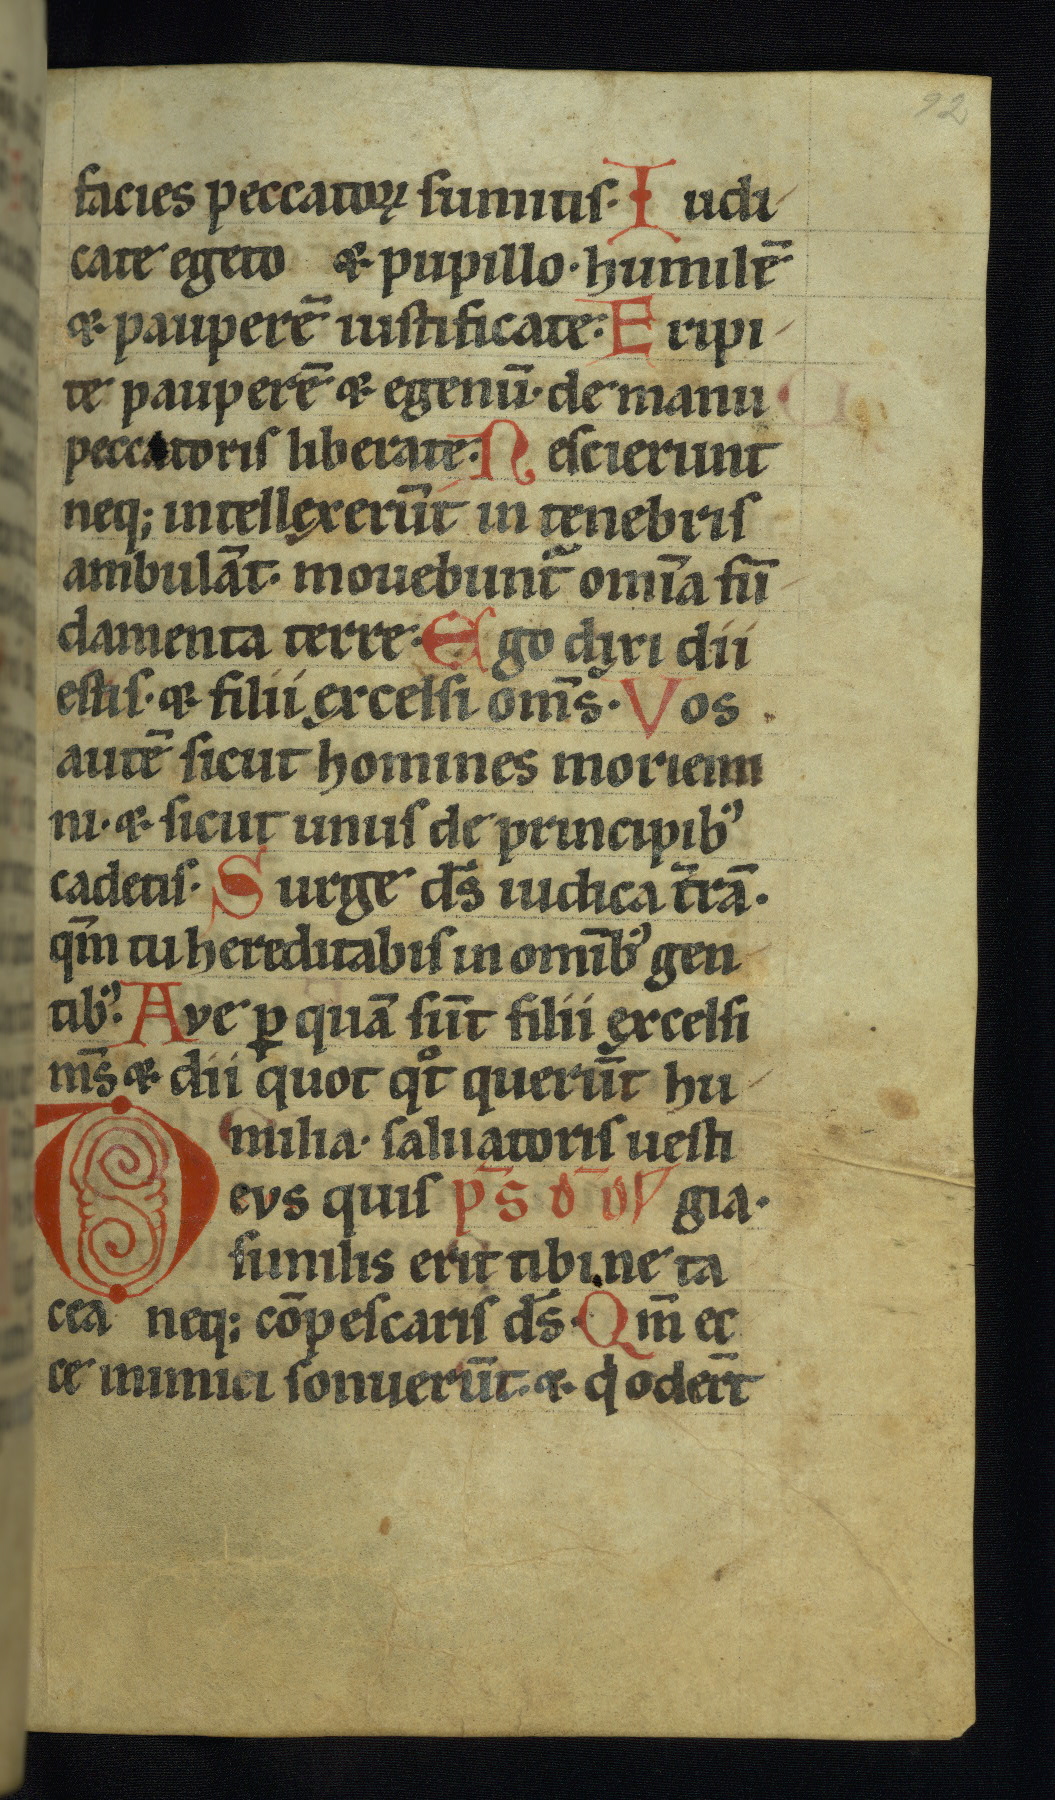 92
facies peccatoꝝ sumitis· Iudi
cate egeto & pupillo· humilē
& pauperē iustificate· Eripi
te pauperē & egenū· de manu
peccatoris liberate· Nescierunt
neq; intellexerūt in tenebris
ambulāt· mouebunt̄ omīa fū
damenta terre· Ego dixi dii
estis· & filii excelsi om̄s· Vos
autē sicut homines moriemi
ni· & sicut unus de principibꝰ
cadetis· Surge ds̄ iudica t̄rā·
qm̄ tu hereditabis in omībꝰ gen
tibꝰ· Ave ꝑ quā sūt filii excelsi
om̄s & dii quot qͦt querūt hu
milia· saluatoris uesti
Deus quis ps̄ d̄ d̄ gia·
similis erit tibi ne ta
cea neq; cōpescaris ds̄· Qm̄ ec
ce inimici sonuerūt· & q odert̄